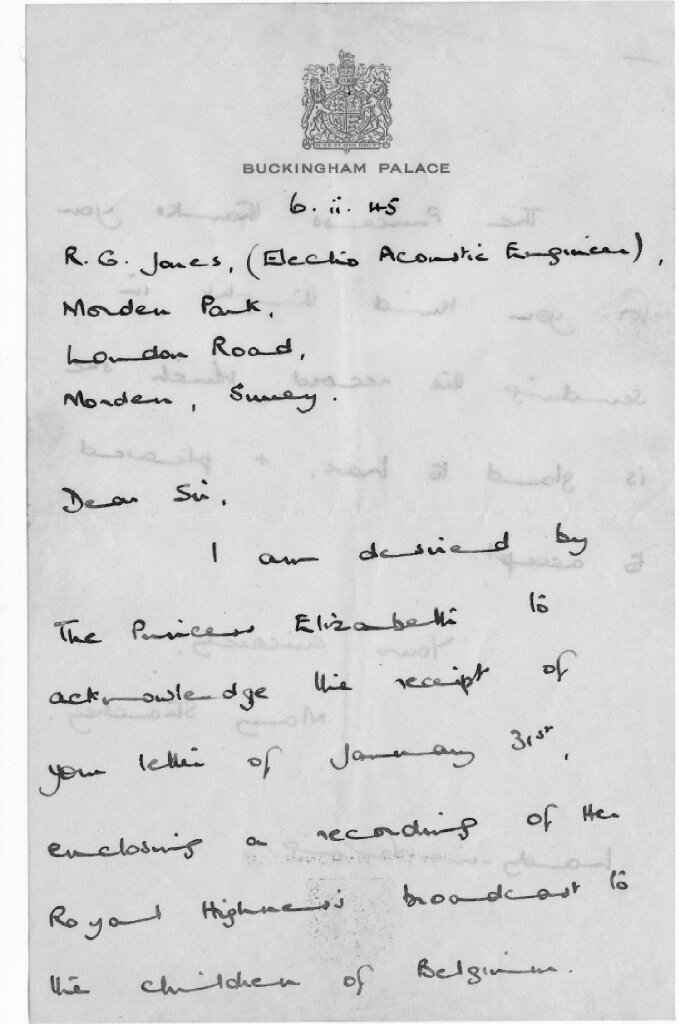 BUCKINGHAM PALACE
6. ii. 45
R. G. Jones, (Electro Acoustic Engineer),
Morden Park,
London Road,
Morden, Surrey.
Dear Sir,
I am desired by
The Princess Elizabeth to
acknowledge the receipt of
your letter of January 31st,
enclosing a recording of Her
Royal Highness's broadcast to
the children of Belgium.